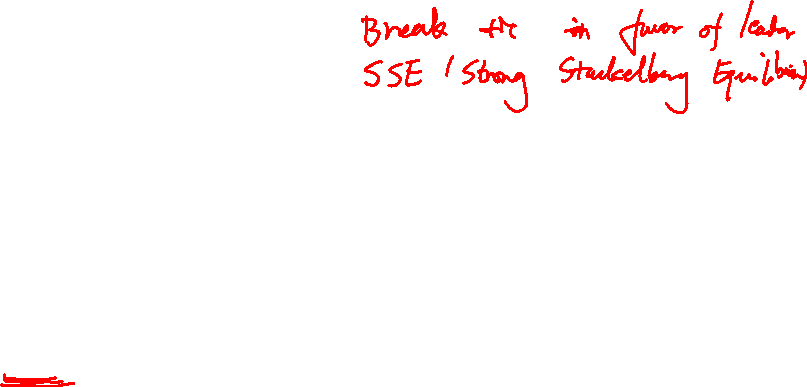 Break tie in favor of leader
SSE (Strong Stackelberg Equilibrium)